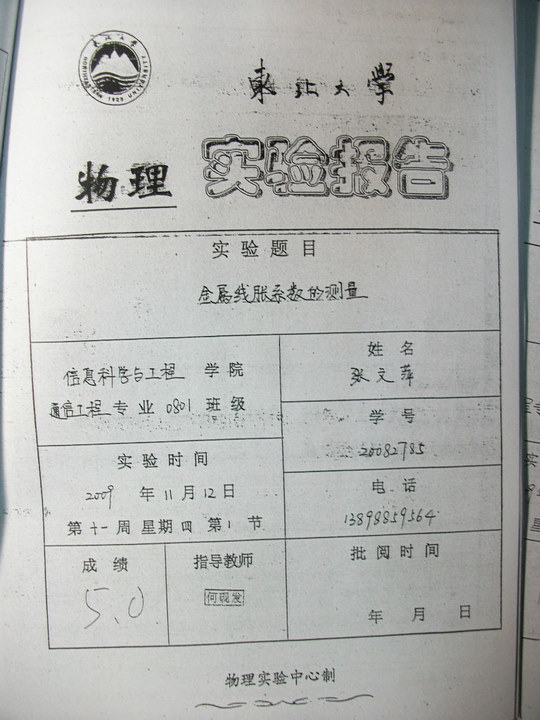 東北大學
物理 实验报告
实验题目
金属线胀系数的测量
信息科学与工程 学院
通信工程 专业 0801 班级
姓名
张文萍
学号
20082785
实验时间
2009 年 11 月 12 日
第 十一 周 星期 四 第 1 节
电话
13898859564
成绩
5.0
指导教师
批阅时间
年 月 日
物理实验中心制